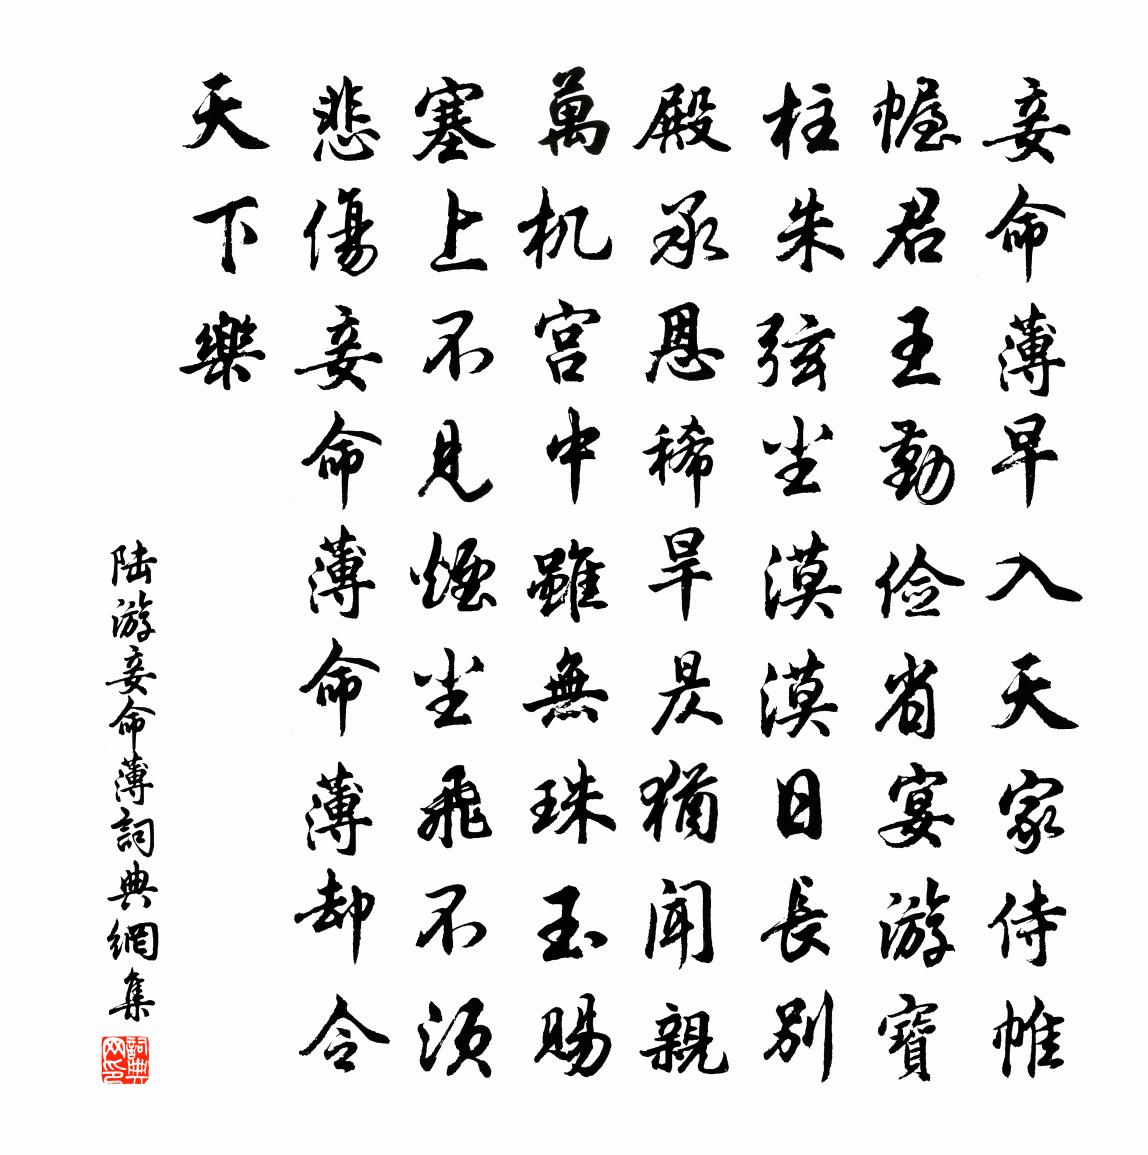 妾命薄早入天家侍帷
幄君王勤俭省宴游寶
柱朱弦尘漠漠日長别
殿承恩稀旱是猶聞親
萬机宫中雖無珠玉賜
塞上不見煙尘飛不須
悲傷妾命薄命薄却令
天下樂
陆游妾命薄詞典網集
詞典网印